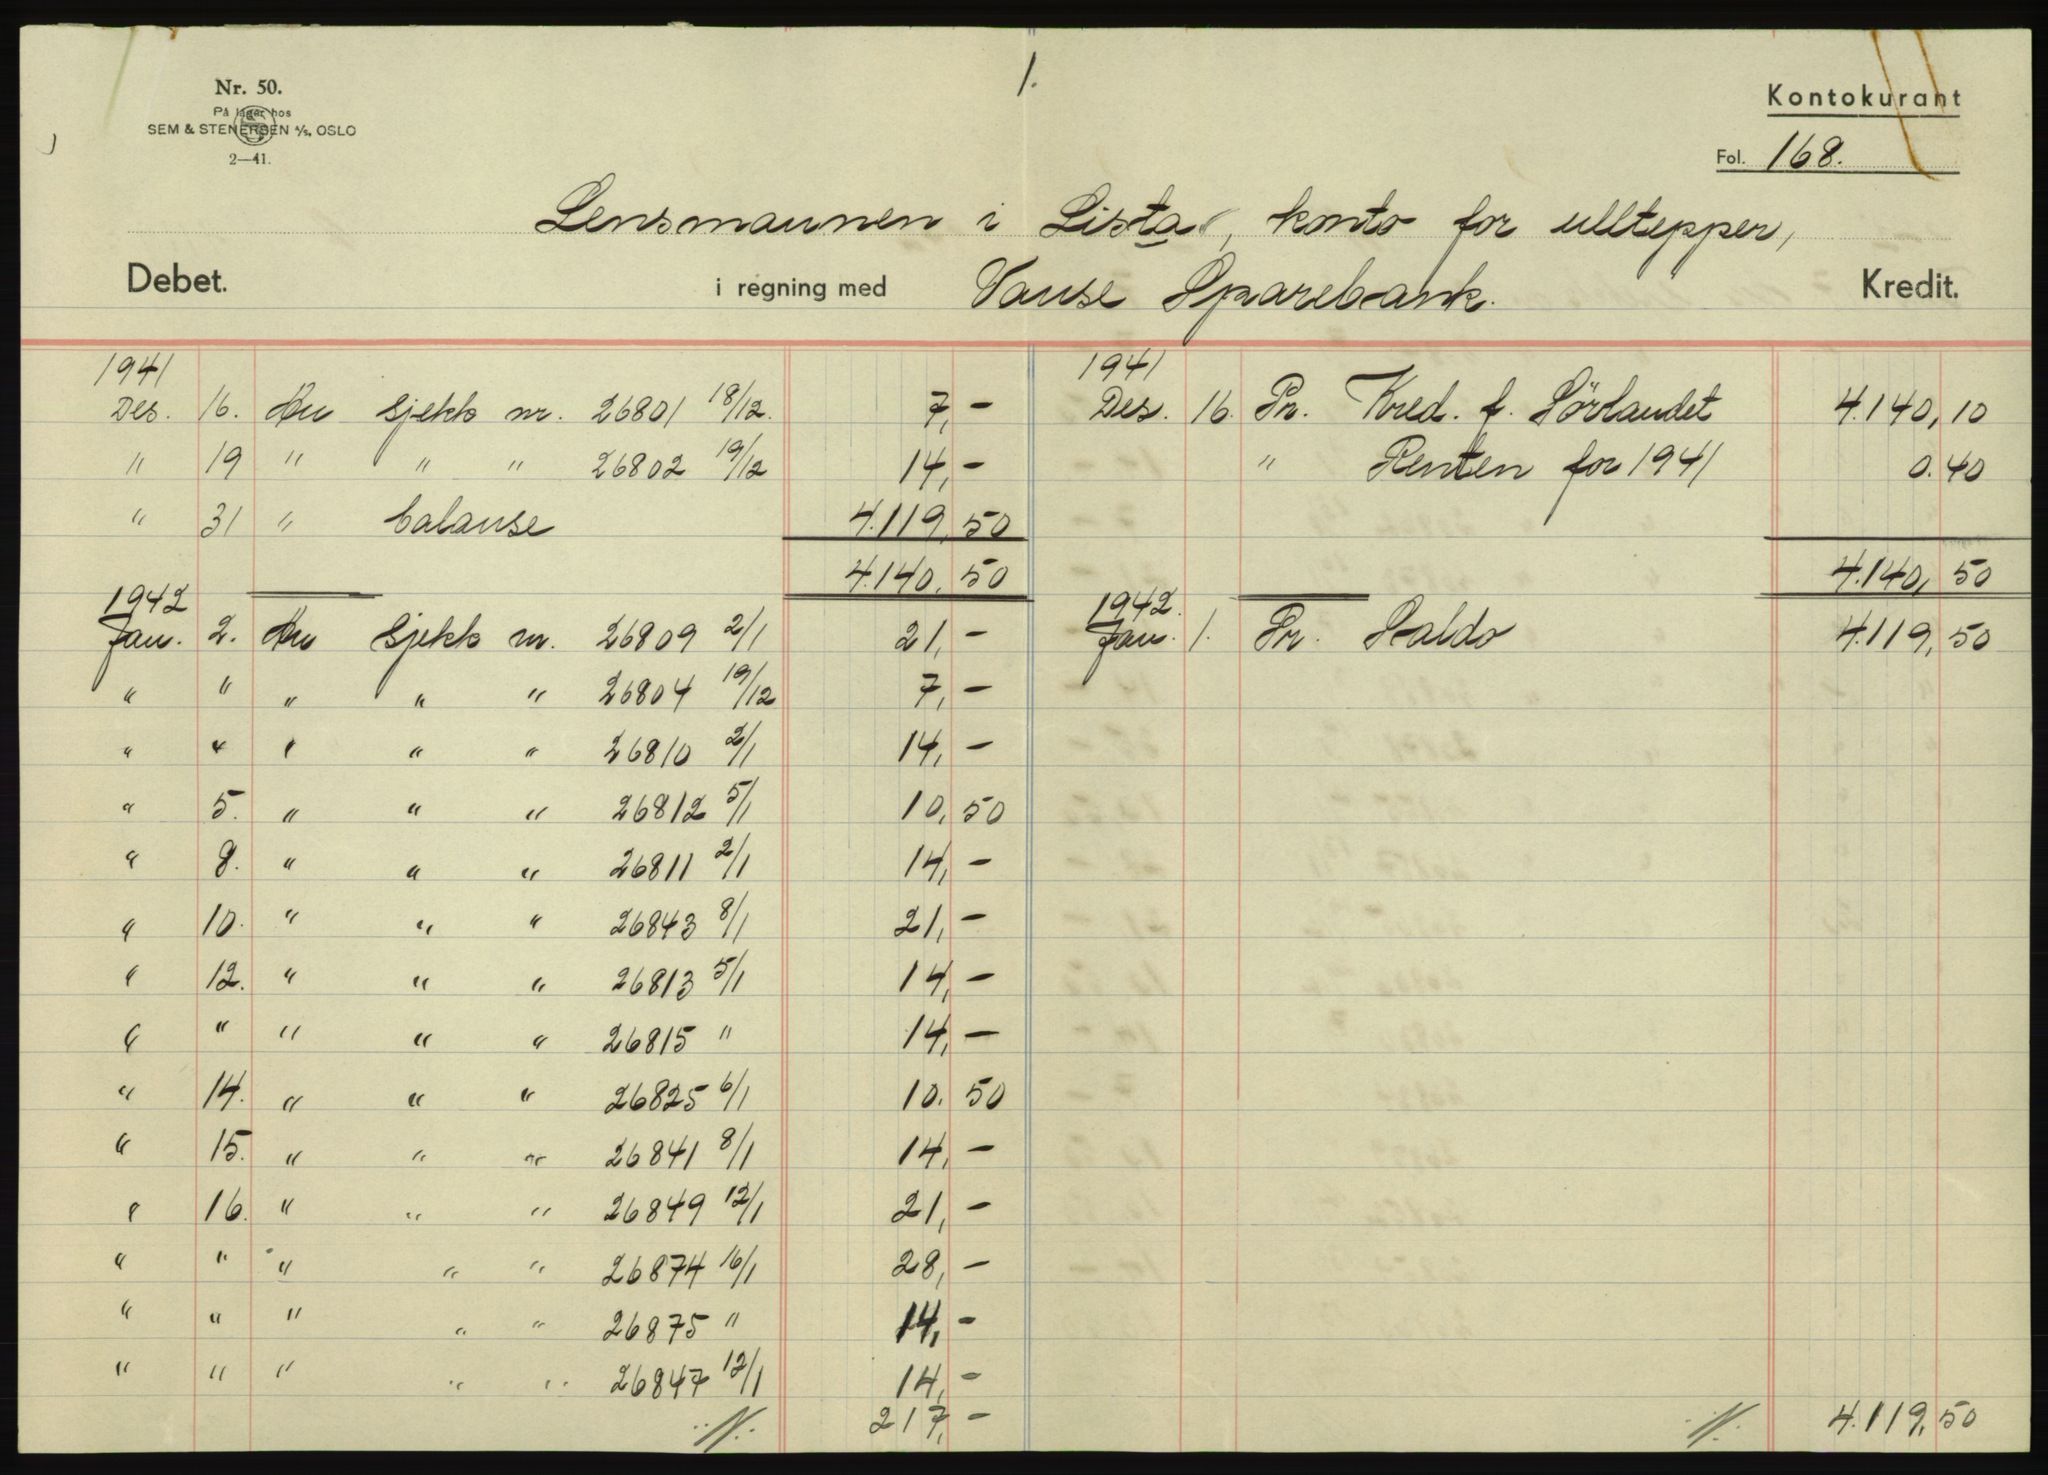 1.
Nr. 50.
På lager hos
SEM & STENERSEN A/S, OSLO
2—41.
Kontokurant
Fol. 168.
Lensmannen i Lista, konto for ulltepper,
Debet. i regning med Vanse Sparebank. Kredit.
1941 1941
Des. 16. An sjekk nr. 26801 18/12. 7,— Des. 16. Pr. Kred. f. Sörlandet 4.140,10
" 19 " " " 26802 19/12 14,— " Renten for 1941 0.40
" 31 " balanse 4.119,50
4.140,50 4.140,50
1942 1942.
Jan. 2. An sjekk nr. 26809 2/1 21,— Jan. 1. Pr. Saldo 4.119,50
" " " " " 26804 19/12 7,—
" " " " " 26810 2/1 14,—
" 5. " " " 26812 5/1 10,50
" 8. " " " 26811 2/1 14,—
" 10. " " " 26843 8/1 21,—
" 12. " " " 26813 5/1 14,—
" " " " " 26815 " 14,—
" 14. " " " 26825 6/1 10.50
" 15. " " " 26841 8/1 14,—
" 16. " " " 26849 12/1 21,—
" " " " " 26874 16/1 28,—
" " " " " 26875 " 14,—
" " " " " 26847 12/1 14,—
217,— 4.119,50